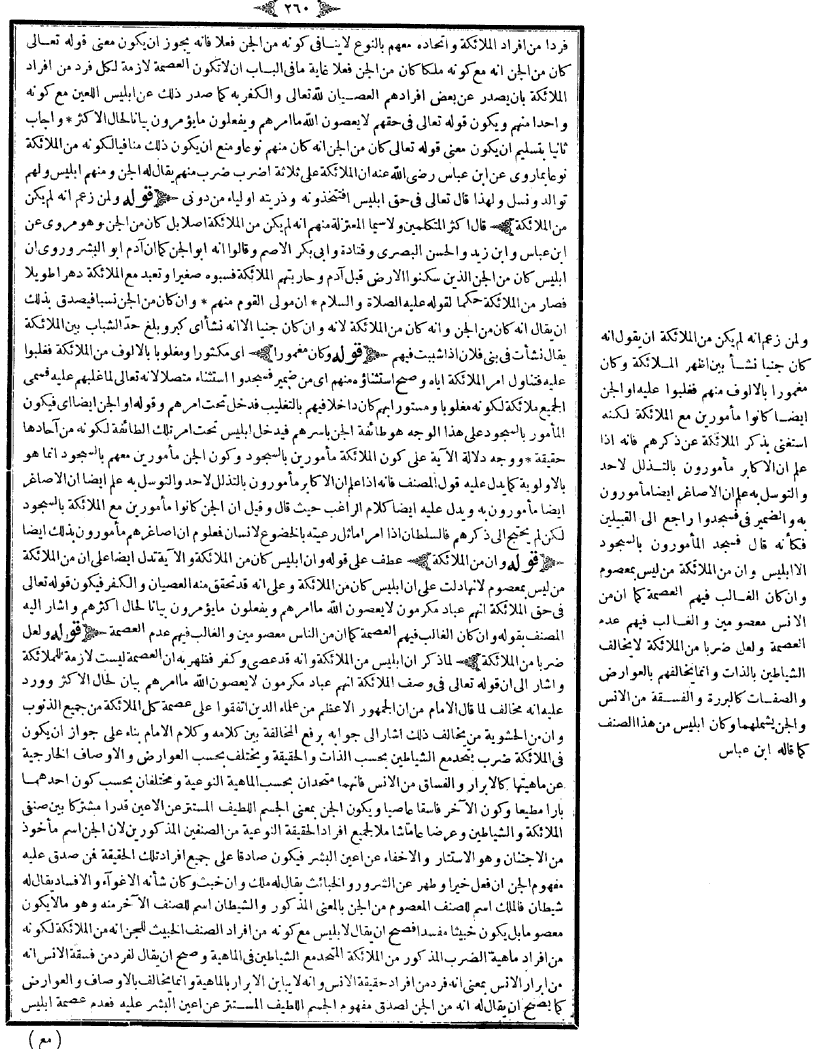 ٢٦٠
فردا من افراد الملائكة واتحاده معهم بالنوع لاينافى كونه من الجن فعلا فانه يجوز ان يكون معنى قوله تعالى
كان من الجن انه مع كونه ملكا كان من الجن فعلا غاية مافى الباب ان لاتكون العصمة لازمة لكل فرد من افراد
الملائكة بان يصدر عن بعض افرادهم العصيان لله تعالى والكفر به كما صدر ذلك عن ابليس اللعين مع كونه
واحدا منهم ويكون قوله تعالى فى حقهم لايعصون الله ما امرهم ويفعلون مايؤمرون بيانا لحال الاكثر * واجاب
ثانيا بتسليم ان يكون معنى قوله تعالى كان من الجن انه كان منهم نوعا ومنع ان يكون ذلك منافيا لكونه من الملائكة
نوعا بماروى عن ابن عباس رضى الله عنه ان الملائكة على ثلاثة اضرب ضرب منهم يقال له الجن ومنهم ابليس ولهم
توالد ونسل ولهذا قال تعالى فى حق ابليس افتتخذونه وذريته اولياء من دونى ﴿ قوله ولمن زعم انه لم يكن
من الملائكة ﴾ قال اكثر المتكلمين ولاسيما المعتزلة منهم انه لم يكن من الملائكة اصلا بل كان من الجن وهو مروى عن
ابن عباس وابن زيد والحسن البصرى وقتادة وابى بكر الاصم وقالوا انه ابو الجن كما ان آدم ابو البشر وروى ان
ابليس كان من الجن الذين سكنوا الارض قبل آدم وحاربتهم الملائكة فسبوه صغيرا وتعبد مع الملائكة دهرا طويلا
فصار من الملائكة حكما لقوله عليه الصلاة والسلام * ان مولى القوم منهم * وان كان من الجن نسبا فيصدق بذلك
ان يقال انه كان من الجن وانه كان من الملائكة لانه وان كان جنيا الا انه نشأ اى كبر وبلغ حد الشباب بين الملائكة
يقال نشأت فى بنى فلان اذا شببت فيهم ﴿ قوله وكان مغمورا ﴾ اى مكثورا ومغلوبا بالالوف من الملائكة فغلبوا
عليه فتناول امر الملائكة اياه وصح استثناؤه منهم اى من ضمير فسجدوا استثناء متصلا لانه تعالى لما غلبهم عليه فسمى
الجميع ملائكة لكونه مغلوبا ومستورا بهم كان داخلا فيهم بالتغليب فدخل تحت امرهم وقوله او الجن ايضا اى فيكون
المأمور بالسجود على هذا الوجه هو طائفة الجن باسرهم فيدخل ابليس تحت امر تلك الطائفة لكونه من آحادها
حقيقة * ووجه دلالة الآية على كون الملائكة مأمورين بالسجود وكون الجن مأمورين معهم بالسجود انما هو
بالاولوية كما يدل عليه قول المصنف فانه اذا علم ان الاكابر مأمورون بالتذلل لاحد والتوسل به علم ايضا ان الاصاغر
ايضا مأمورون به ويدل عليه ايضا كلام الراغب حيث قال وقيل ان الجن كانوا مأمورين مع الملائكة بالسجود
لكن لم يحتج الى ذكرهم فالسلطان اذا امر اماثل رعيته بالخضوع لانسان فمعلوم ان اصاغرهم مأمورون بذلك ايضا
﴿ قوله وان من الملائكة ﴾ عطف على قوله وان ابليس كان من الملائكة والآية تدل ايضا على ان من الملائكة
من ليس بمعصوم لانها دلت على ان ابليس كان من الملائكة وعلى انه قد تحقق منه العصيان والكفر فيكون قوله تعالى
فى حق الملائكة انهم عباد مكرمون لايعصون الله ما امرهم ويفعلون مايؤمرون بيانا لحال اكثرهم واشار اليه
المصنف بقوله وان كان الغالب فيهم العصمة كما ان من الناس معصومين والغالب فيهم عدم العصمة ﴿ قوله ولعل
ضربا من الملائكة ﴾ لما ذكر ان ابليس من الملائكة وانه قد عصى وكفر فظهر به ان العصمة ليست لازمة للملائكة
واشار الى ان قوله تعالى فى وصف الملائكة انهم عباد مكرمون لايعصون الله ما امرهم بيان لحال الاكثر وورد
عليه انه مخالف لما قال الامام من ان الجمهور الاعظم من علماء الدين اتفقوا على عصمة كل الملائكة من جميع الذنوب
وان من الحشوية من يخالف ذلك اشار الى جوابه برفع المخالفة بين كلامه وكلام الامام بناء على جواز ان يكون
فى الملائكة ضرب يتحد مع الشياطين بحسب الذات والحقيقة ويختلف بحسب العوارض والاوصاف الخارجية
عن ماهيتها كالابرار والفساق من الانس فانهما متحدان بحسب الماهية النوعية ومختلفان بحسب كون احدهما
بارا مطيعا وكون الآخر فاسقا عاصيا ويكون الجن بمعنى الجسم اللطيف المستتر عن الاعين قدرا مشتركا بين صنفى
الملائكة والشياطين وعرضا عاما شاملا لجميع افراد الحقيقة النوعية من الصنفين المذكورين لان الجن اسم مأخوذ
من الاجتنان وهو الاستتار والاخفاء عن اعين البشر فيكون صادقا على جميع افراد تلك الحقيقة فمن صدق عليه
مفهوم الجن ان فعل خيرا وطهر عن الشرور والخبائث يقال له ملك وان خبث وكان شأنه الاغوآء والافساد يقال له
شيطان فالملك اسم للصنف المعصوم من الجن بالمعنى المذكور والشيطان اسم للصنف الآخر منه وهو مالايكون
معصوما بل يكون خبيثا مفسدا فصح ان يقال لابليس مع كونه من افراد الصنف الخبيث للجن انه من الملائكة لكونه
من افراد ماهية الضرب المذكور من الملائكة المتحد مع الشياطين فى الماهية وصح ان يقال لفرد من فسقة الانس انه
من ابرار الانس بمعنى انه فرد من افراد حقيقة الانس وانه لايباين الابرار بالماهية وانما يخالف بالاوصاف والعوارض
كما يصح ان يقال له انه من الجن لصدق مفهوم الجسم اللطيف المستتر عن اعين البشر عليه فعدم عصمة ابليس
( مع )
ولمن زعم انه لم يكن من الملائكة ان يقول انه
كان جنيا نشأ بين اظهر الملائكة وكان
مغمورا بالالوف منهم فغلبوا عليه او الجن
ايضا كانوا مأمورين مع الملائكة لكنه
استغنى بذكر الملائكة عن ذكرهم فانه اذا
علم ان الاكابر مأمورون بالتذلل لاحد
والتوسل به علم ان الاصاغر ايضا مأمورون
به والضمير فى فسجدوا راجع الى القبيلين
فكأنه قال فسجد المأمورون بالسجود
الا ابليس وان من الملائكة من ليس بمعصوم
وان كان الغالب فيهم العصمة كما ان من
الانس معصومين والغالب فيهم عدم
العصمة ولعل ضربا من الملائكة لايخالف
الشياطين بالذات وانما يخالفهم بالعوارض
والصفات كالبررة والفسقة من الانس
والجن يشملهما وكان ابليس من هذا الصنف
كما قاله ابن عباس